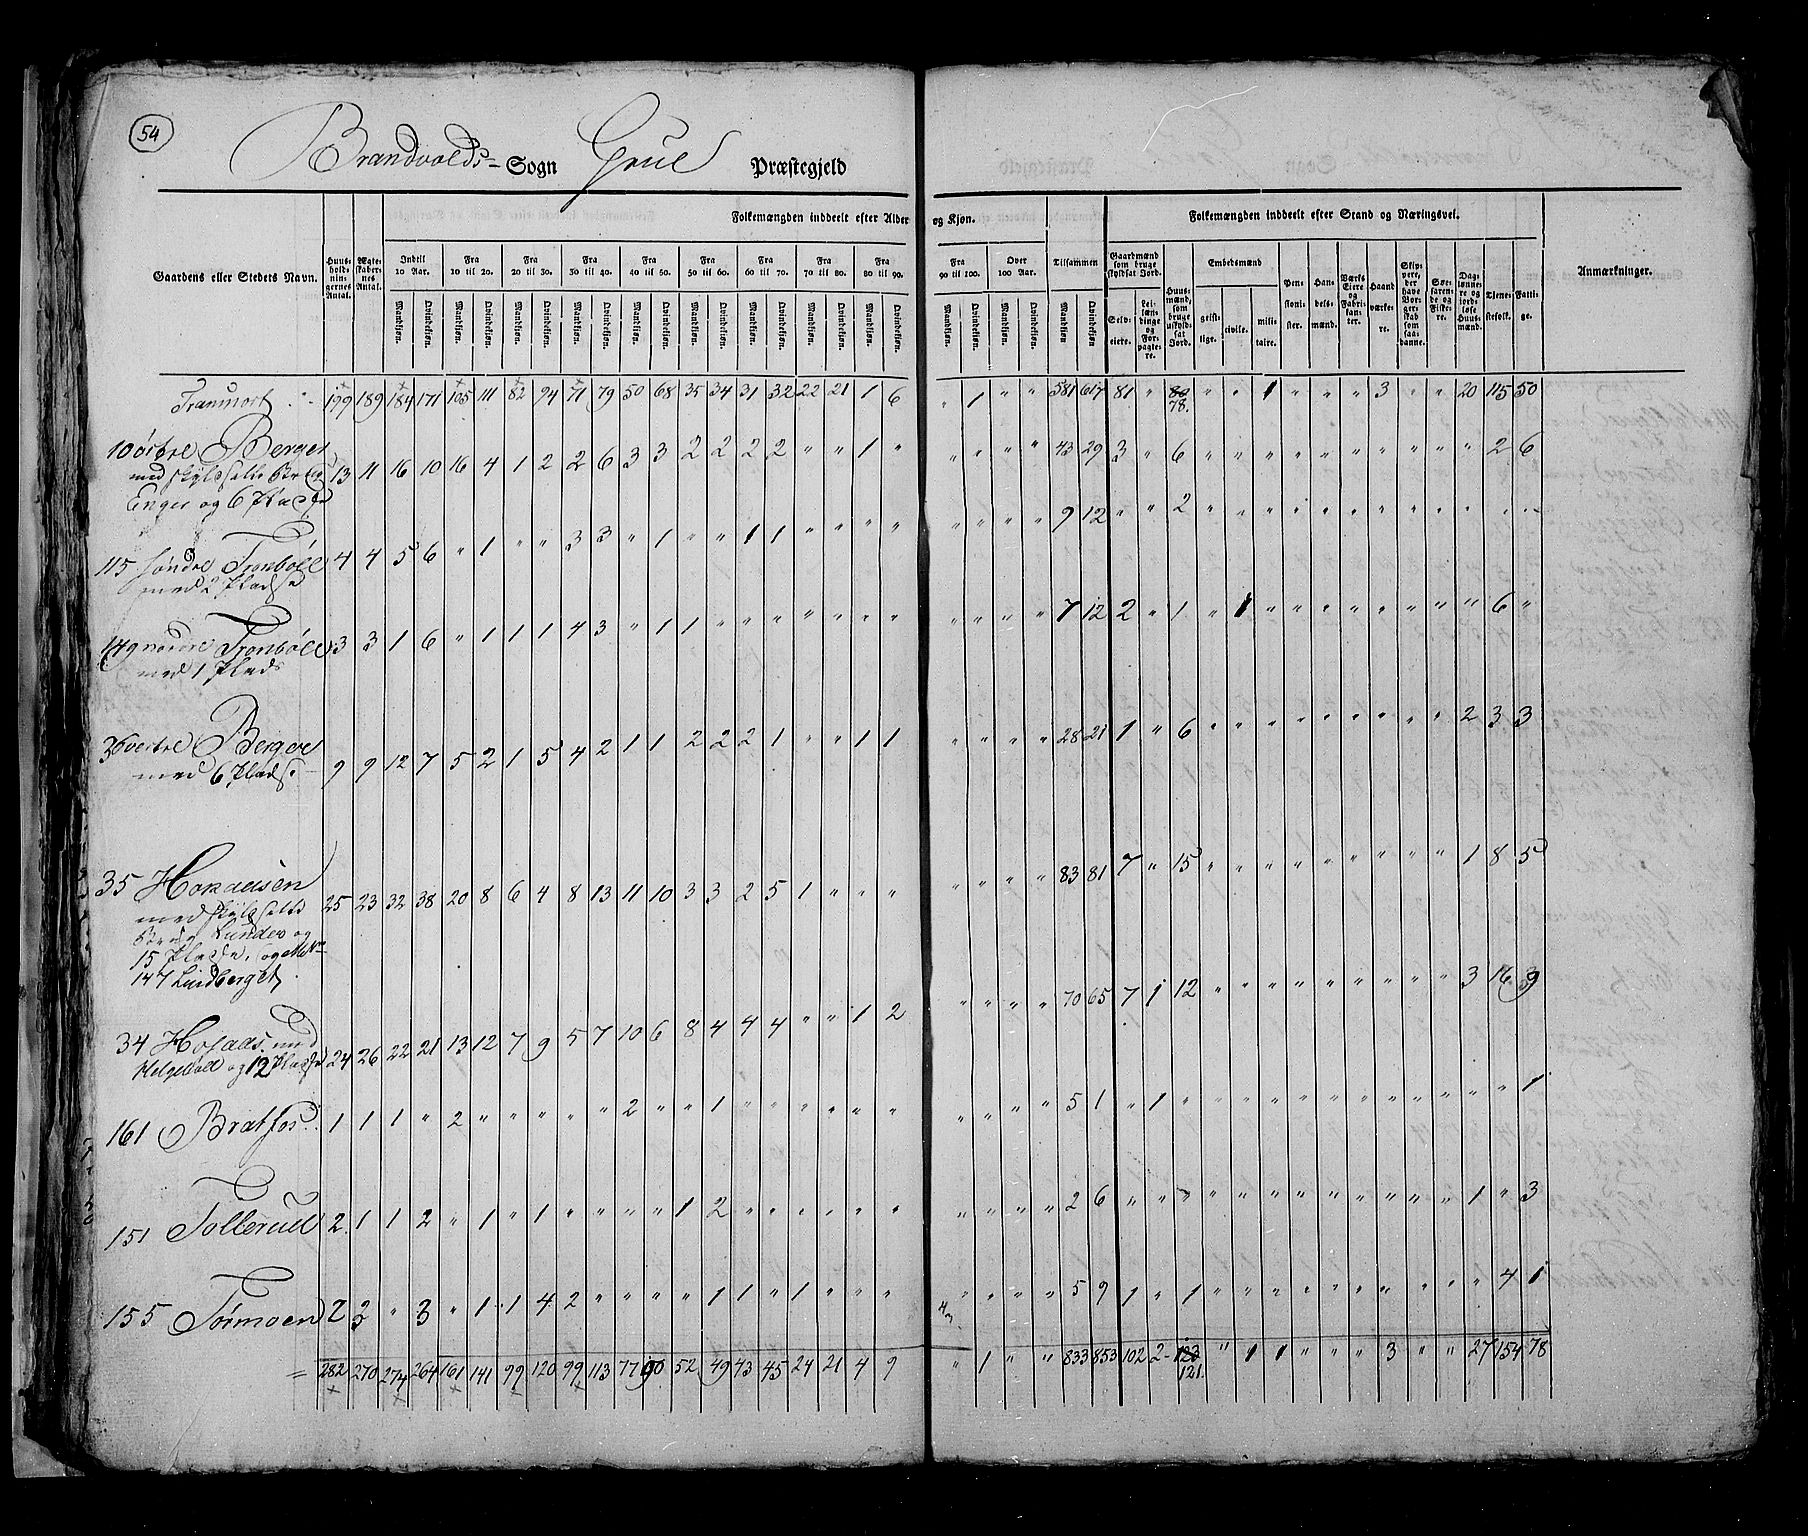 54
Brandvolds= Sogn Grue Præstegjeld
Folkemængden inddeelt efter Alder og Kjøn. Folkemængden inddeelt efter Stand og Næringsvei.
Gaardens eller Stedets Navn. Huusholdningernes Antal. Ægteskabernes Antal. Indtil 10 Aar. Fra 10 til 20. Fra 20 til 30. Fra 30 til 40. Fra 40 til 50. Fra 50 til 60. Fra 60 til 70. Fra 70 til 80. Fra 80 til 90. Fra 90 til 100. Over 100 Aar. Tilsammen Gaardmænd som bruge skyldsat Jord. Huusmænd, som bruge uskyldsat Jord. Embedsmænd Pensionister. Handelsmænd. Værks Eiere og Fabrikanter. Haandværkere. Skippere, der have Borgerskab som saadanne. Søefarende og Fiskere. Daglønnere og jordløse Huusmænd. Tjenestefolk. Fattige. Anmærkninger.
Mandkjøn. Qvindekjøn. Mandkjøn. Qvindekjøn. Mandkjøn. Qvindekjøn. Mandkjøn. Qvindekjøn. Mandkjøn. Qvindekjøn. Mandkjøn. Qvindekjøn. Mandkjøn. Qvindekjøn. Mandkjøn. Qvindekjøn. Mandkjøn. Qvindekjøn. Mandkjøn. Qvindekjøn. Mandkjøn. Qvindekjøn. Mandkjøn. Qvindekjøn. Selveiere. Leilændinge og Forpagtere. geistlige. civile. militaire.
Transport 199 189 184 171 105 111 82 94 71 79 50 68 35 34 31 32 22 21 1 6 " 1 " " 581 617 81 " 80 78. " " 1 " " " 3 " " 20 115 50
10 østre Berger
med skyldsatte 13 11 16 10 16 4 1 2 2 6 3 3 2 2 2 2 " " 1 " " " " " 43 29 3 " 6 " " " " " " " " " " 2 6
Enger og 6 Pladse
115 søndre Tronbøll 4 4 5 6 " 1 " " 3 3 " 1 " " 1 1 " " " " " " " " 9 12 " " 2 " " " " " " " " " " " "
med 2 Pladse
149 nordre Tronbøll 3 3 1 6 " 1 1 1 4 3 " 1 1 " " " " " " " " " " " 7 12 2 " 1 " 1 " " " " " " " " 6 "
med 1 Plads
36 vestre Berger
med 6 Pladse 9 9 12 7 5 2 1 5 4 2 1 1 2 2 2 1 " " 1 1 " " " " 28 21 1 " 6 " " " " " " " " " 2 3 3
35 Hokaasen
med skyldsatte 25 23 32 38 20 8 6 4 8 13 11 10 3 3 2 5 1 " " " " " " " 83 81 7 " 15 " " " " " " " " " 1 8 5
Lundes og
15 Pladse, og
147 Lindberget
34 Hofaas med
Helgedall og 12 Pladse 24 26 22 21 13 12 7 9 5 7 10 6 8 4 4 4 " " 1 2 " " " " 70 65 7 1 12 " " " " " " " " " 3 16 9
161 Bratfos. 1 1 1 " 2 " " " " " 2 " " 1 " " " " " " " " " " 5 1 " 1 " " " " " " " " " " " " 1
151 Tollerud 2 1 1 2 " 1 " 1 " " " " 1 2 " " " " " " " " " " 2 6 " " " " " " " " " " " " 1 " 3
155 Tørmoen 2 3 " 3 " 1 1 4 2 " " " " 1 1 " 1 " " " " " " " 5 9 1 " 1 " " " " " " " " " " 4 1
= 282 270 274 264 161 141 99 120 99 113 77 90 52 49 43 45 24 21 4 9 " 1 " " 833 853 102 2 123 121. " 1 1 " " " 3 " " 27 154 78